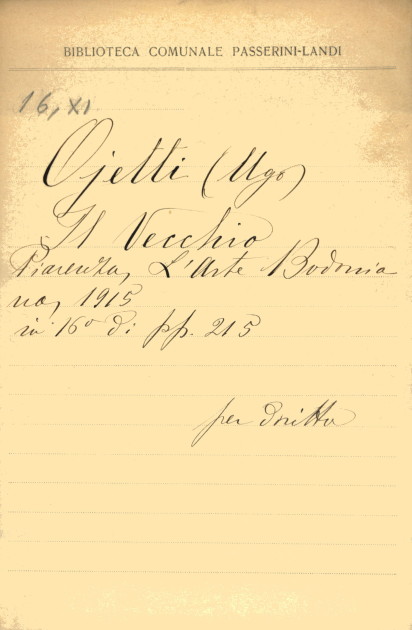 BIBLIOTECA COMUNALE PASSERINI-LANDI
16, XI
Ojetti (Ugo)
Il Vecchio
Piacenza, L'Arte Bodonia
na, 1915
in 16° di pp. 215
per dritto